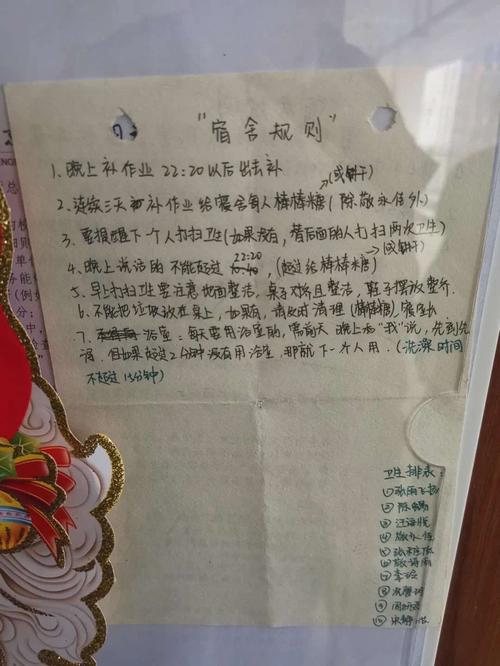 "宿舍规则"
1、晚上补作业 22:20以后出去补
(或饼干)
2、连续三天 补作业给寝舍每人棒棒糖(除敬永佳外)
3、要提醒下个人打扫卫生(如果没有,替后面的人打扫两次卫生)
(或饼干)
22:20
4、晚上说话的 不能超过 10:40,(超过给棒棒糖)
5、早上打扫卫生要注意地面整洁,桌子对齐且整洁,鞋子摆放整齐
6、不能把垃圾放在桌上,如果有,请及时清理(棒棒糖)寝室长
7、浴室:每天要用浴室的,需前天晚上和"我"说,先到先
得,但如果超过2分钟没有用浴室,那就下一个人用。(洗澡时间
不超过15分钟)
卫生排表:
①张雨
②陈
③汪海
④敬永佳
⑤张
⑥敬诗雨
⑦李
⑧
⑨周
⑩宋静